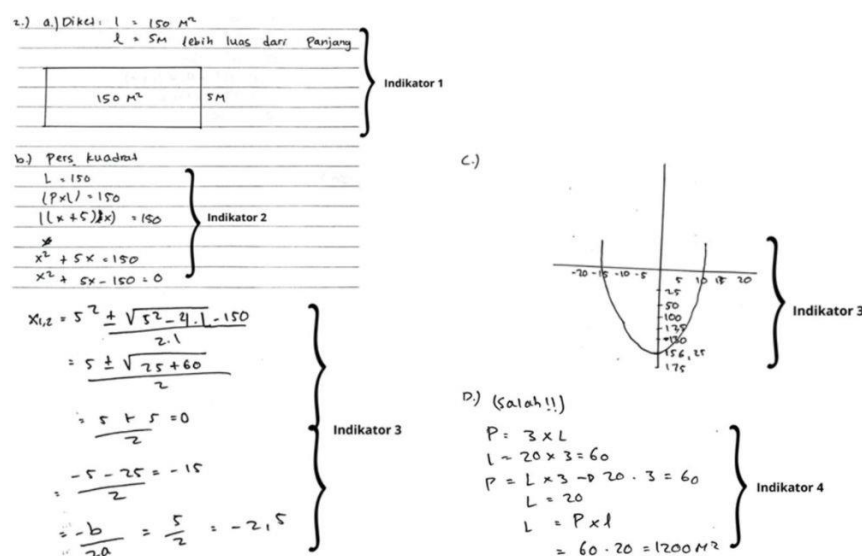 2.) a.) Diket: l = 150 M²
l = 5M lebih luas dari Panjang
150 M² 5M
Indikator 1
b.) Pers. kuadrat
L = 150
(P×L) = 150
((x+5)(x) = 150
x² + 5x = 150
x² + 5x - 150 = 0
Indikator 2
x₁,₂ = 5² ± √5² - 4.1 - 150
2.1
= 5 ± √25 + 60
2
= 5 + 5 = 0
2
= -5 - 25 = -15
2
= -b = 5 = -2,5
2a 2
Indikator 3
C.)
-20 -15 -10 -5 5 10 15 20
25
50
100
125
150
156,25
175
Indikator 3
D.) (Salah!!)
P = 3 × L
L = 20 × 3 = 60
P = L × 3 → 20 . 3 = 60
L = 20
L = P × l
= 60 . 20 = 1200 M²
Indikator 4